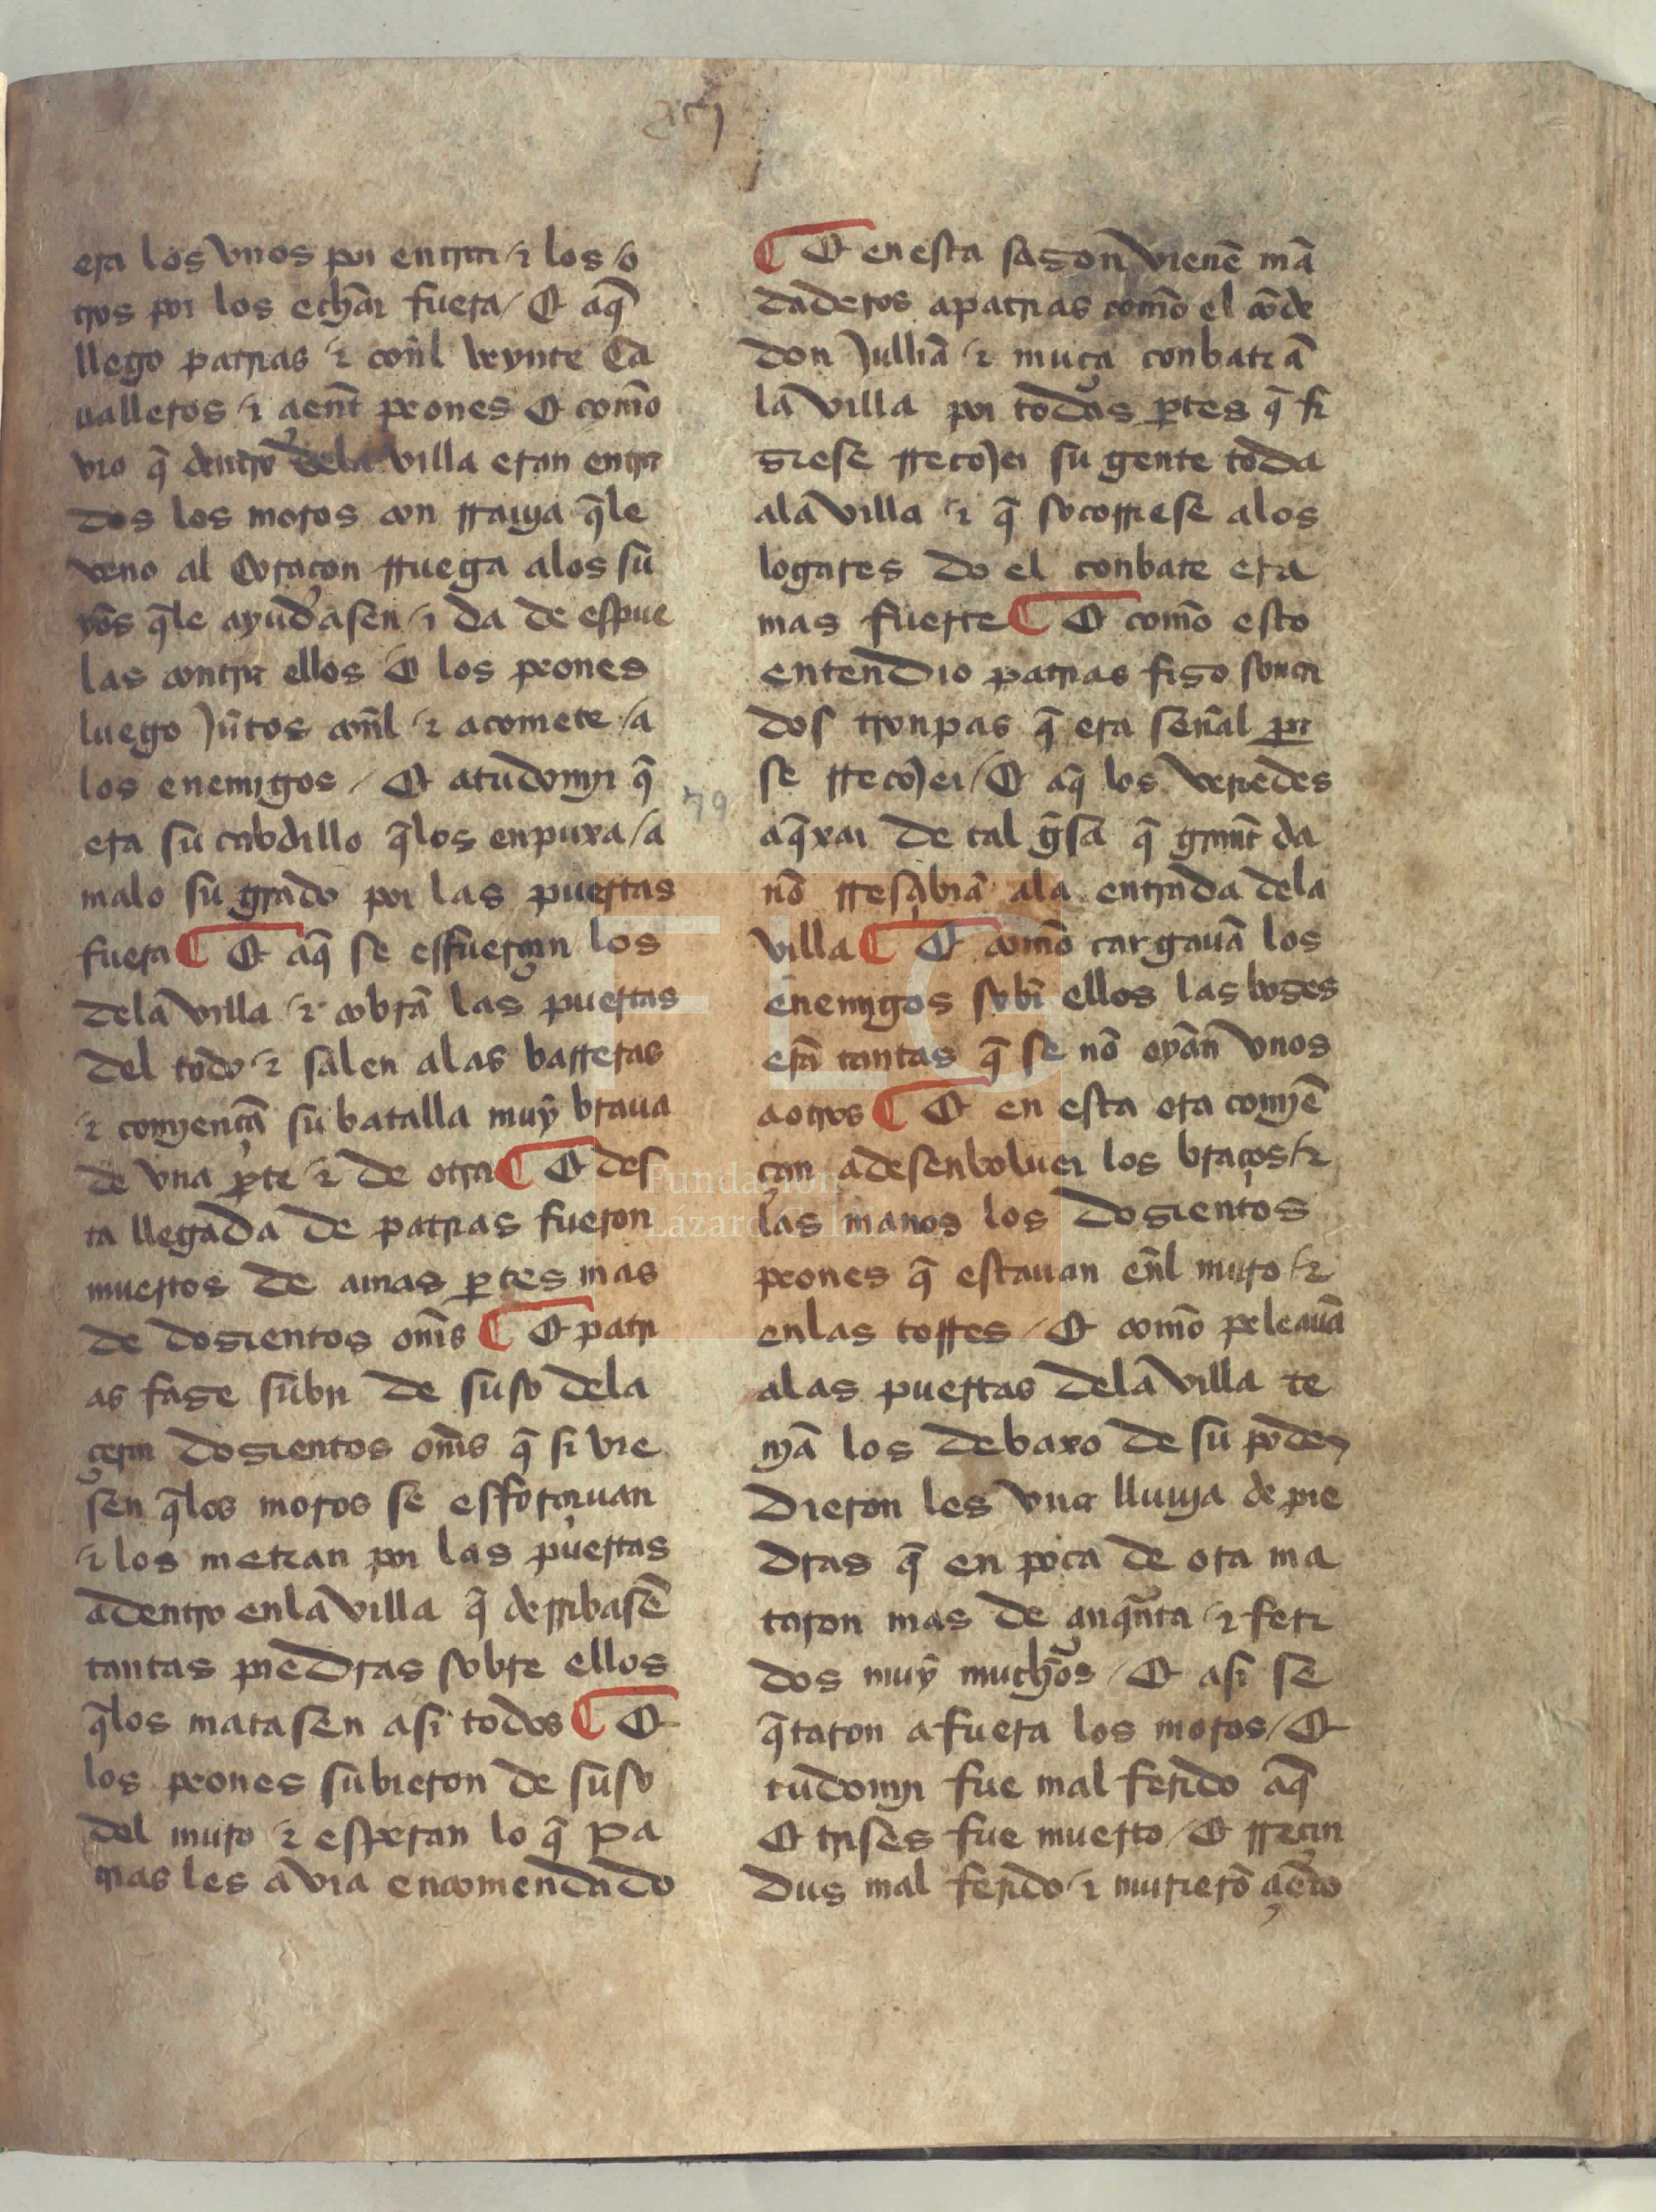 xcij
era los vnos por entrar ⁊ los o
tros por los echar fuera / Et aq̃
llego patrias ⁊ coñl veynte ca
ualleros ⁊ çient peones Et como
vio q̃ dentro dela villa eran entra
dos los moros con rrauja q̃le
veno al coraçon rruega alos su
yos q̃le ayudasen ⁊ da de espue
las contra ellos Et los peones
luego Jũtos coñl ⁊ acomete / a
los enemigos / Et atudomjr q̃
era su cabdillo q̃los enpuxa / a
malo su grado por las puertas
fuera ¶ Et aq̃ se esfuerçan los
dela villa ⁊ cobrã las puertas
del todo ⁊ salen alas barreras
⁊ comjençã su batalla muy braua
de vna ꝑte ⁊ de otra ¶ Et des
ta llegada de patrias fueron
muertos de amas ꝑtes mas
de dosientos om̃s ¶ Et patri
as fase subir de suso dela
çerca dosientos om̃s q̃ si vie
sen q̃los moros se esforçauan
⁊ los metian por las puertas
adentro enla villa q̃ derribasẽ
tantas piedras sobre ellos
q̃los matasen asi todos ¶ Et
los peones subieron de suso
del muro ⁊ esperan lo q̃ pa
trias les avia encomendado
79
¶ Et enesta sason vienẽ mã
daderos apatrias como el conde
don Julliã ⁊ muça conbatiã
la villa por todas ꝑtes q̃ fi
siese rrecojer su gente toda
ala villa ⁊ q̃ socorriese alos
logares do el conbate era
mas fuerte ¶ Et como esto
entendio patrias fiso sonar
dos tronpas q̃ era señal ꝑa
se rrecojer / Et aq̃ los veriedes
aq̃xar de tal gĩsa q̃ grant da
ño rresçibiã ala entrada dela
villa ¶ Et como cargauã los
enemigos sobr̃ ellos las boses
erã tantas q̃ se nõ oyãn vnos
aotros ¶ Et en esta ora comjẽ
çan adesenboluer los braços ⁊
las manos los dosientos
peones q̃ estauan eñl muro ⁊
enlas torres / Et como peleauã
alas puertas dela villa te
njã los debaxo de su poder
dieron les vna lluuja de pie
dras q̃ en poca de ora ma
taron mas de çinq̃nta ⁊ feri
dos muy muchos / Et asi se
q̃taron afuera los moros / Et
tudomjr fue mal ferido aq̃
Et trises fue muerto / Et rrecin
dus mal ferido ⁊ murierõ çiento